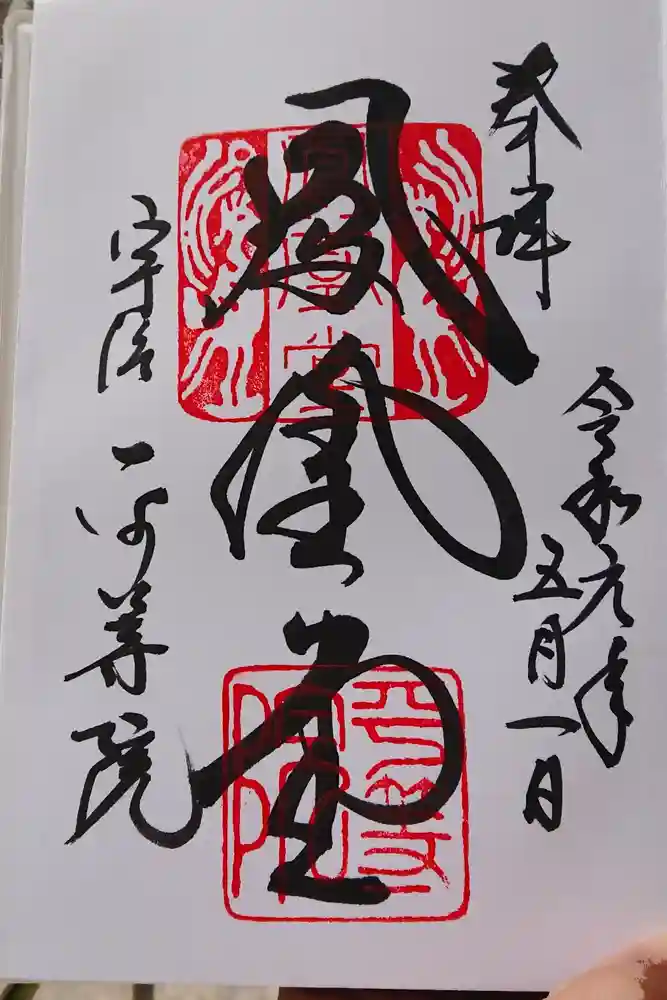 奉拝
令和元年
五月一日
鳳凰堂
宇治 平等院
鳳凰堂
平等院